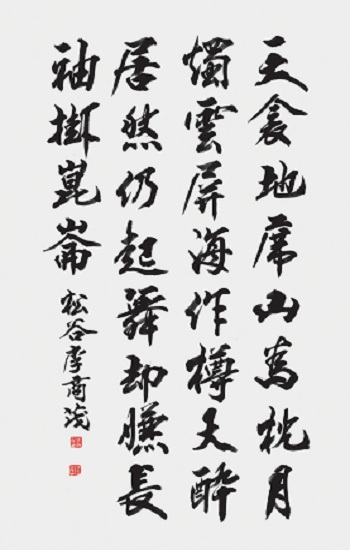 天衾地席山為枕月
燭雲屏海作樽大醉
居然仍起舞却嫌長
袖掛崑崙
松谷李商